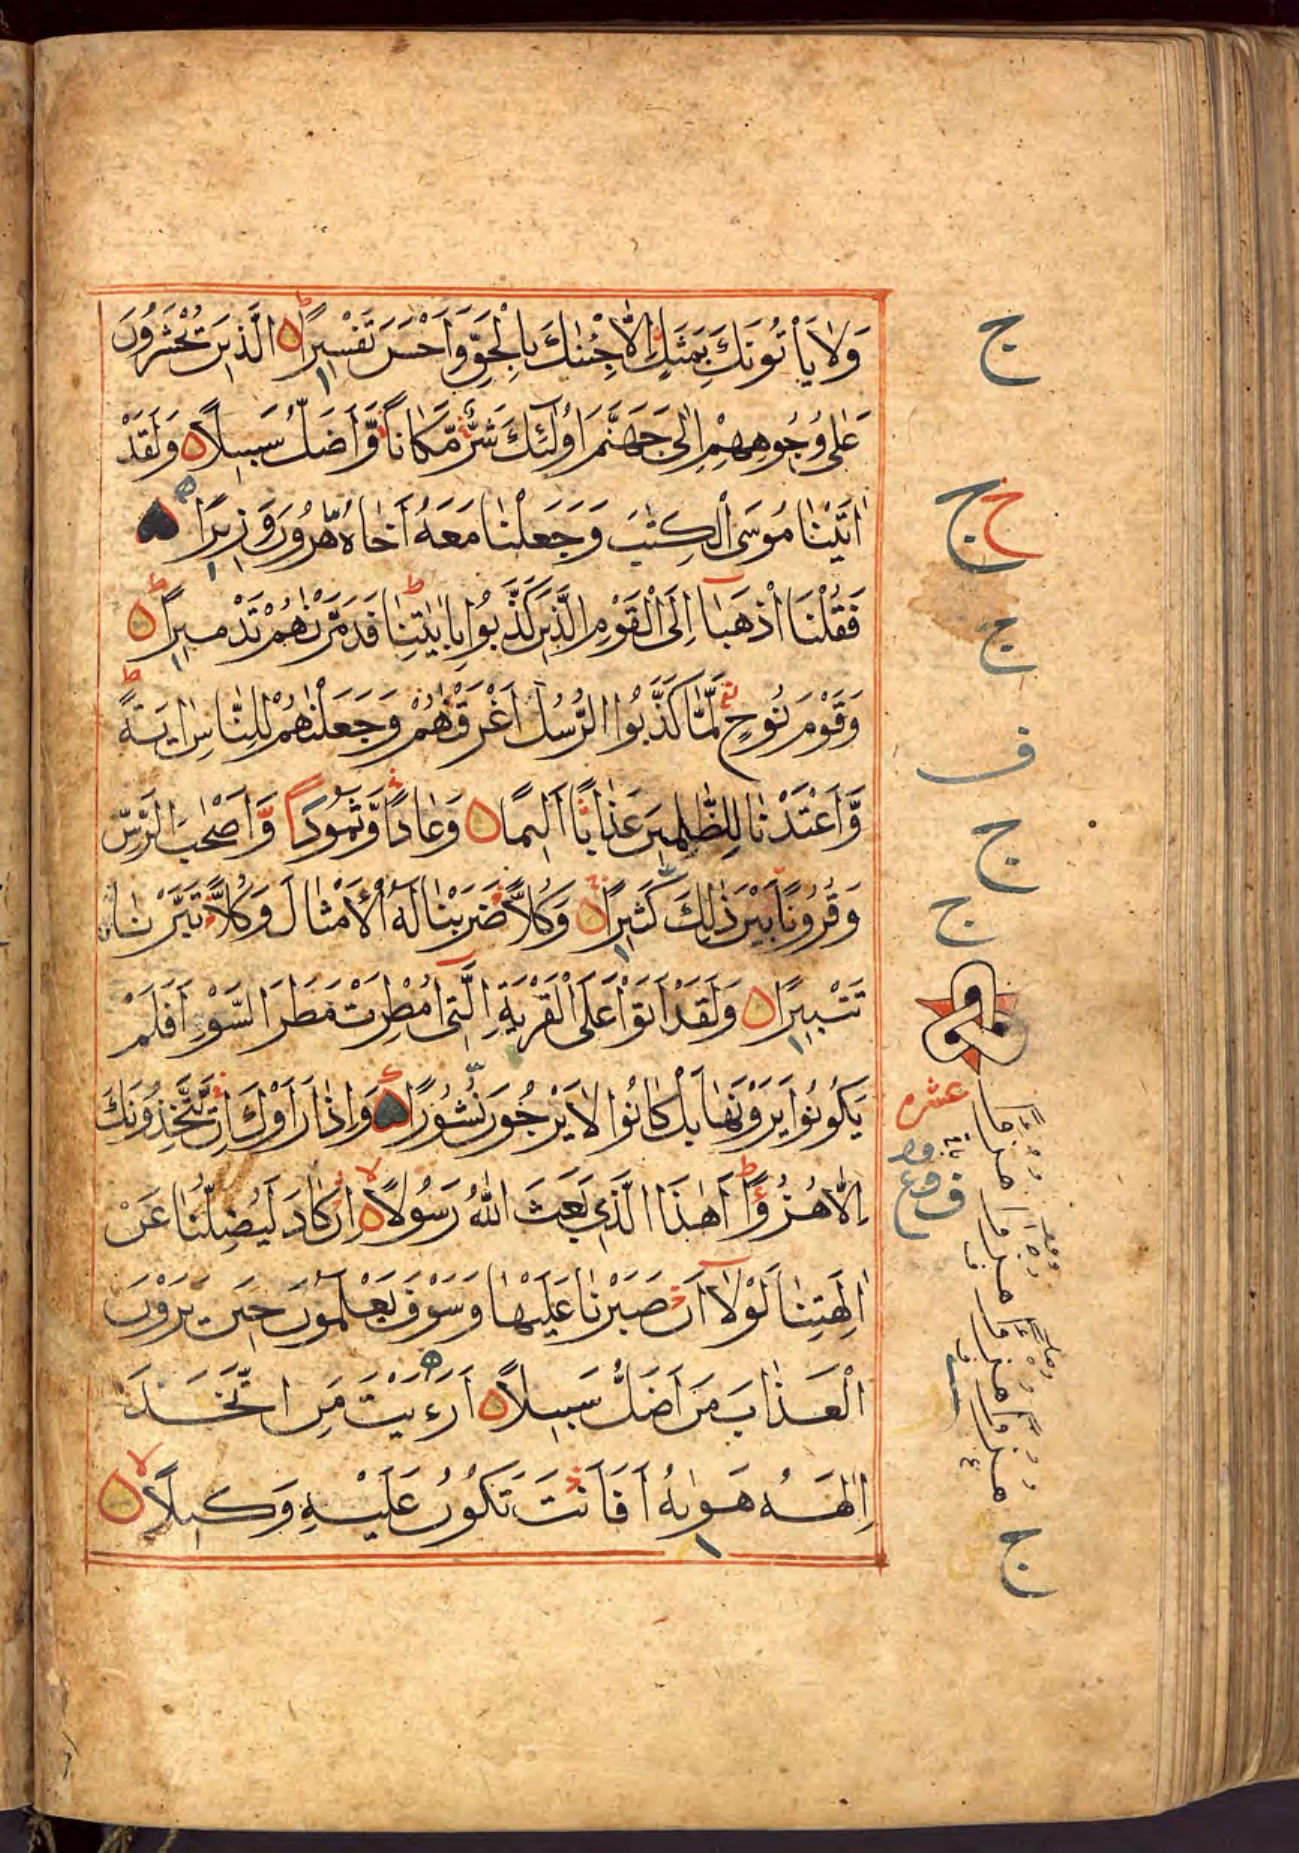 وَلَا يَأْتُونَكَ بِمَثَلٍ إِلَّا جِئْنٰكَ بِالْحَقِّ وَأَحْسَنَ تَفْسِيرًا الَّذِينَ يُحْشَرُونَ
عَلٰى وُجُوهِهِمْ إِلٰى جَهَنَّمَ أُولٰئِكَ شَرٌّ مَّكَانًا وَّأَضَلُّ سَبِيلًا وَلَقَدْ
اٰتَيْنَا مُوسَى الْكِتٰبَ وَجَعَلْنَا مَعَهُ أَخَاهُ هٰرُونَ وَزِيرًا
فَقُلْنَا اذْهَبَا إِلَى الْقَوْمِ الَّذِينَ كَذَّبُوا بِاٰيٰتِنَا فَدَمَّرْنٰهُمْ تَدْمِيرًا
وَقَوْمَ نُوحٍ لَّمَّا كَذَّبُوا الرُّسُلَ أَغْرَقْنٰهُمْ وَجَعَلْنٰهُمْ لِلنَّاسِ اٰيَةً
وَّأَعْتَدْنَا لِلظّٰلِمِينَ عَذَابًا أَلِيمًا وَعَادًا وَّثَمُودَا وَّأَصْحٰبَ الرَّسِّ
وَقُرُونًا بَيْنَ ذٰلِكَ كَثِيرًا وَكُلًّا ضَرَبْنَا لَهُ الْأَمْثَالَ وَكُلًّا تَبَّرْنَا
تَتْبِيرًا وَلَقَدْ أَتَوْا عَلَى الْقَرْيَةِ الَّتِي أُمْطِرَتْ مَطَرَ السَّوْءِ أَفَلَمْ
يَكُونُوا يَرَوْنَهَا بَلْ كَانُوا لَا يَرْجُونَ نُشُورًا وَإِذَا رَأَوْكَ إِنْ يَّتَّخِذُونَكَ
إِلَّا هُزُؤًا أَهٰذَا الَّذِي بَعَثَ اللّٰهُ رَسُولًا إِنْ كَادَ لَيُضِلُّنَا عَنْ
اٰلِهَتِنَا لَوْلَا أَنْ صَبَرْنَا عَلَيْهَا وَسَوْفَ يَعْلَمُونَ حِينَ يَرَوْنَ
الْعَذَابَ مَنْ أَضَلُّ سَبِيلًا أَرَءَيْتَ مَنِ اتَّخَذَ
إِلٰهَهُ هَوٰىهُ أَفَأَنْتَ تَكُونُ عَلَيْهِ وَكِيلًا
ج
ج
ج
ف
ج
ج
عشره
ج